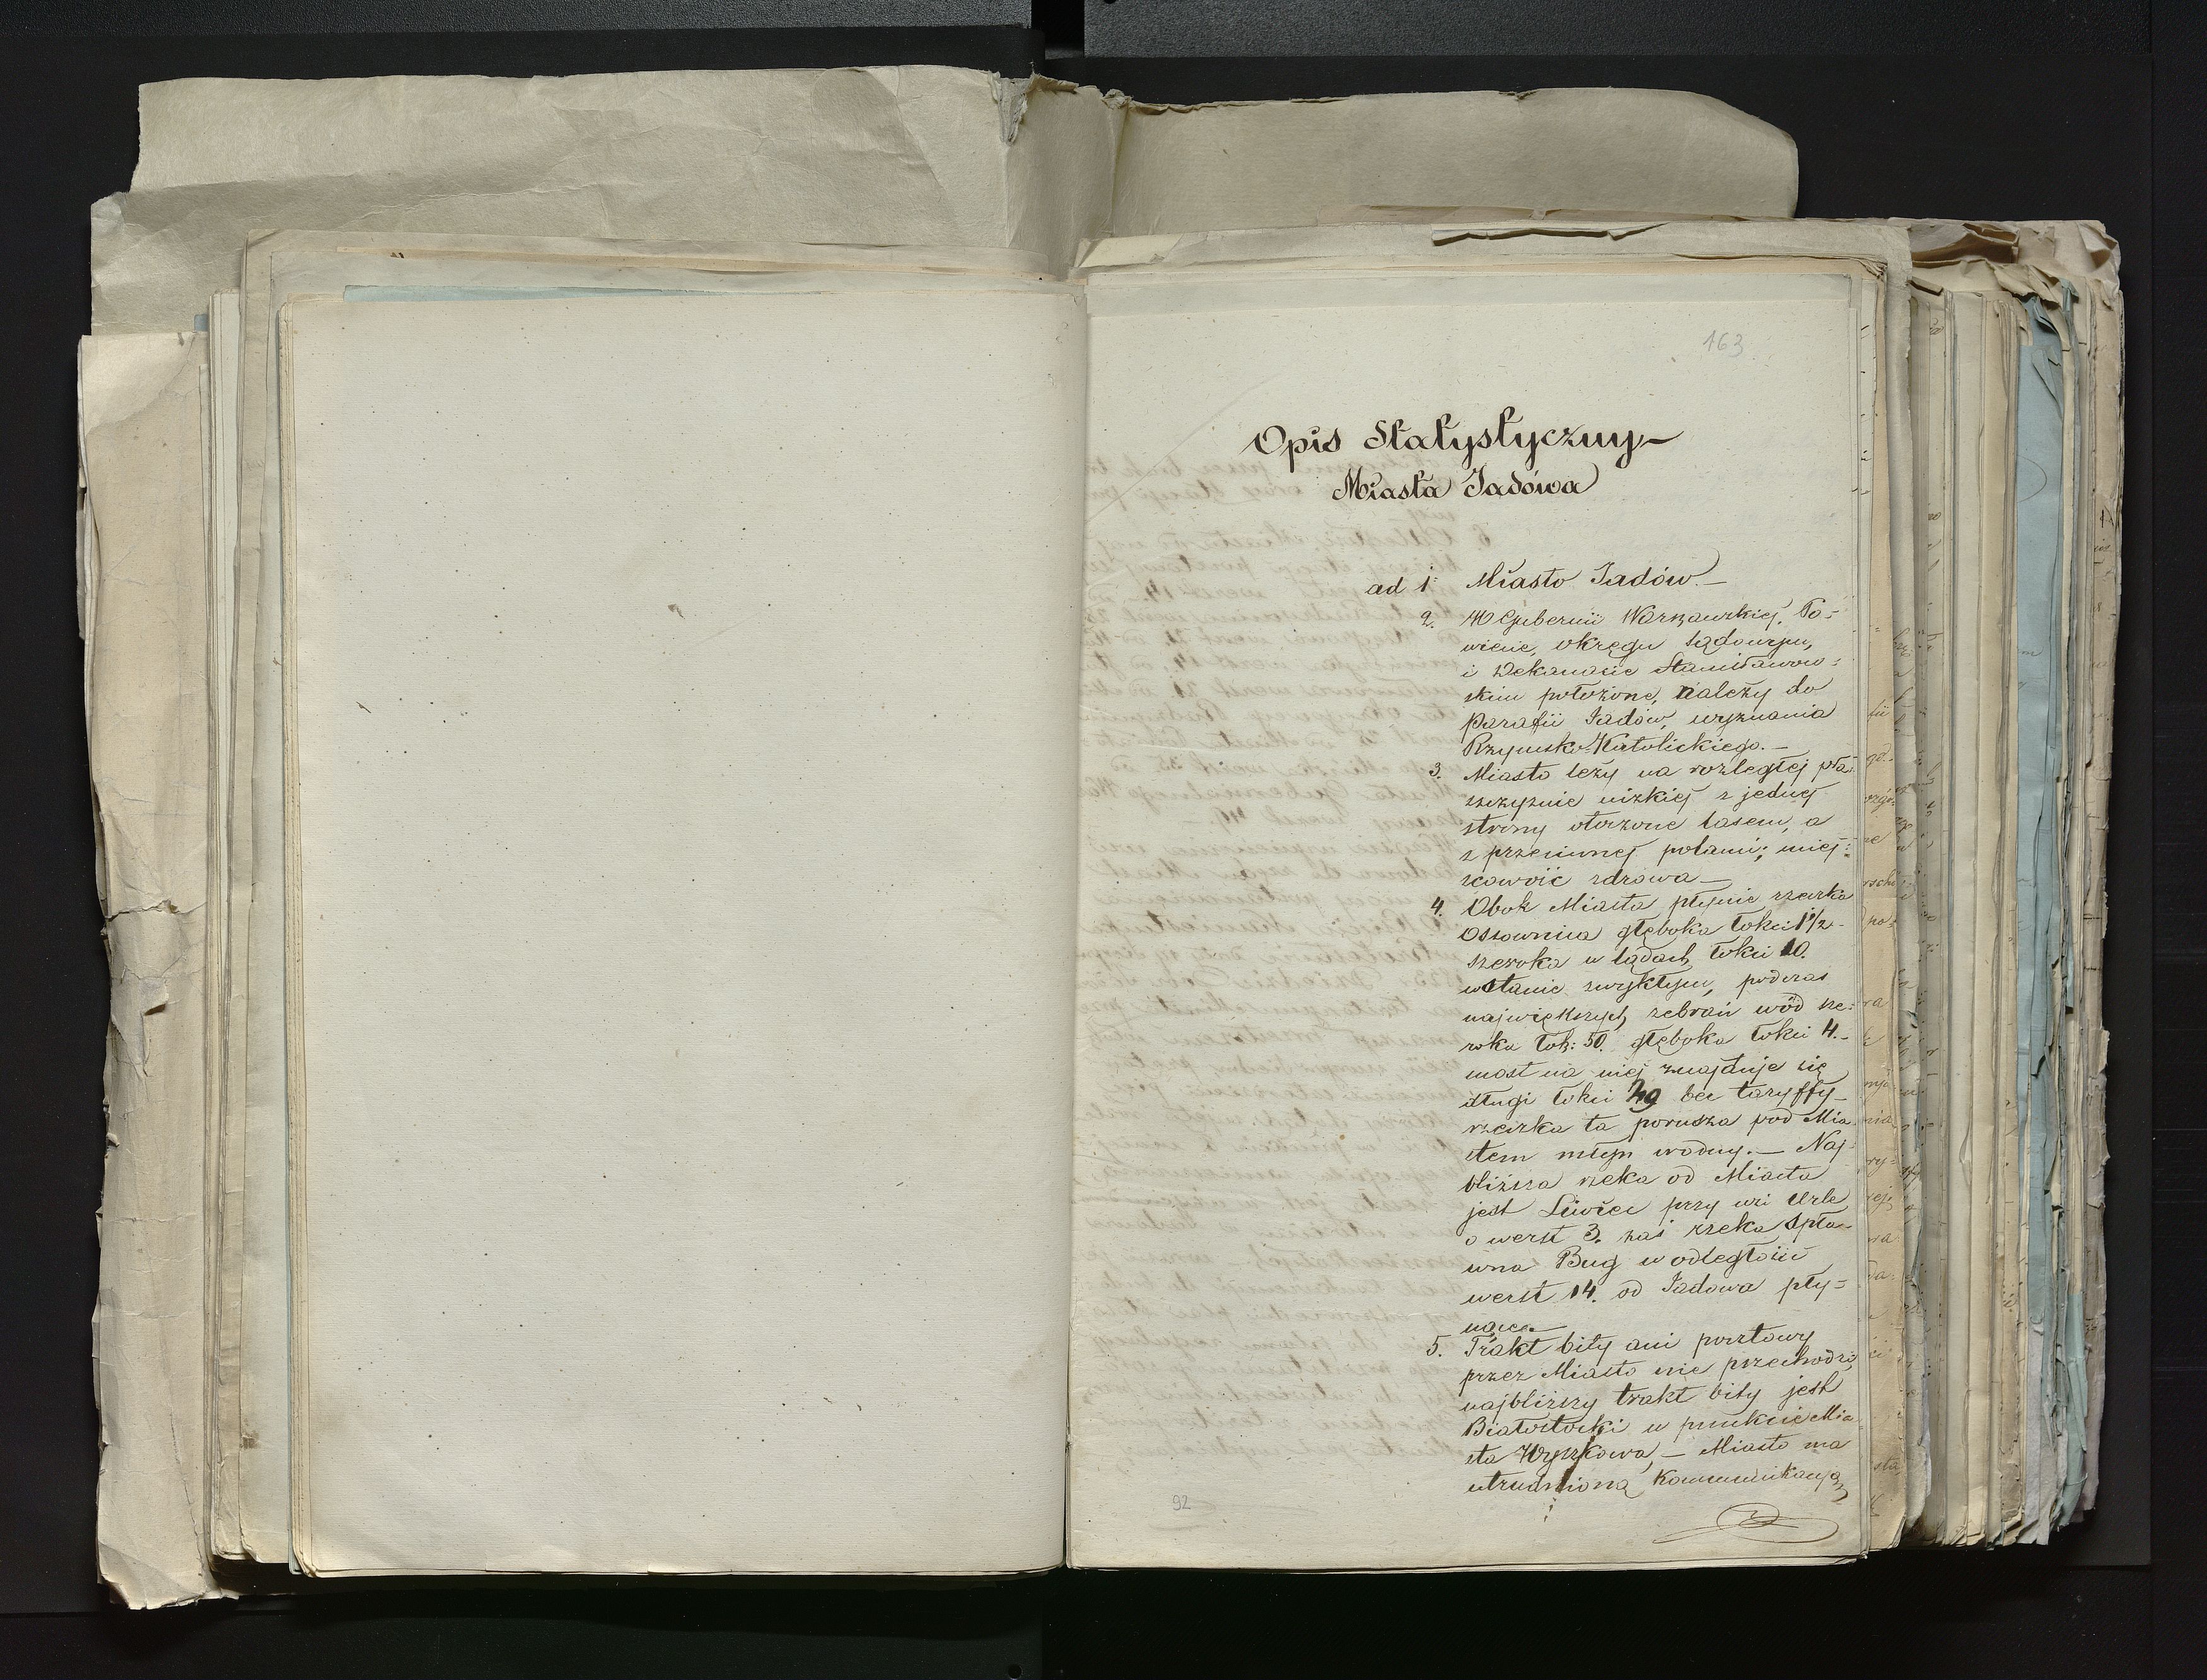 163
Opis Statystyczny
Miasta Jadowa
ad 1. Miasto Jadów.—
2. W Gubernii Warszawskiej, Po-
wiecie, okręgu sądowym,
i Dekanacie Stanisławow-
skim położone, należy do
Parafii Jadów, wyznania
Rzymsko-Katolickiego.—
3. Miasto leży na rozległej pła-
szczyznie nizkiej z jednej
strony otoczone lasem, a
z przeciwnej polami; miej-
scowość zdrowa—
4. Obok Miasta płynie rzeczka
Ossownica głęboka łokci 1 1/2
szeroka w lądach łokci 10.
w stanie zwykłym, podczas
największych zebrań wód sze-
roka łok: 50. głęboka łokci 4.—
most na niej znajduje się
długi łokci 29 bez taryffy—
rzeczka ta porusza pod Mia-
stem młyn wodny.— Naj-
bliższa rzeka od Miasta
jest Liwiec przy wsi Urle
o werst 3. zaś rzeka spła-
wna Bug w odległości
werst 14. od Jadowa pły-
nąca.—
5. Trakt bity ani pocztowy
przez Miasto nie przechodzi,
najbliższy trakt bity jest
Białostocki w punkcie Mia-
sta Wyszkowa,— Miasto ma
utrudnioną kommunikacją
92